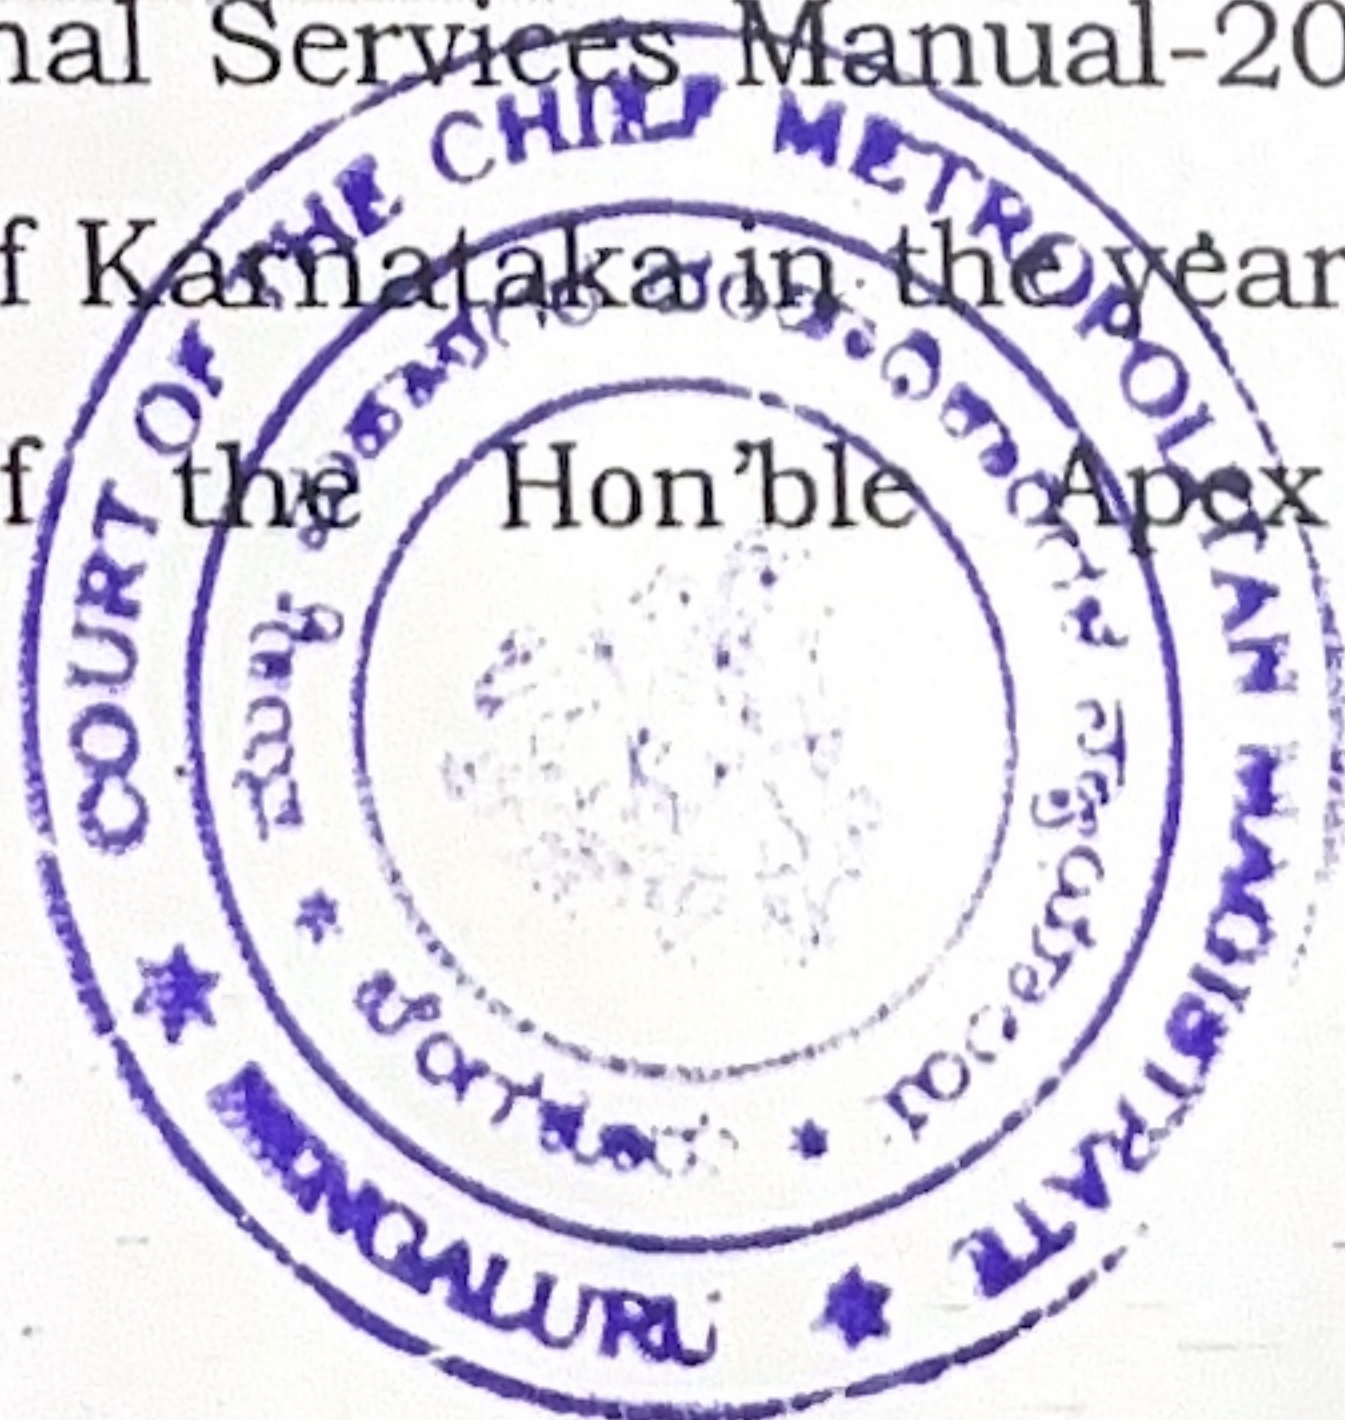 nal Services Manual-20
f Karnataka in the year
f the Hon'ble Apex
COURT OF THE CHIEF METROPOLITAN MAGISTRATE
BENGALURU
ಮುಖ್ಯ ಮಹಾನಗರ ದಂಡಾಧಿಕಾರಿಗಳ ನ್ಯಾಯಾಲಯ
ಬೆಂಗಳೂರು